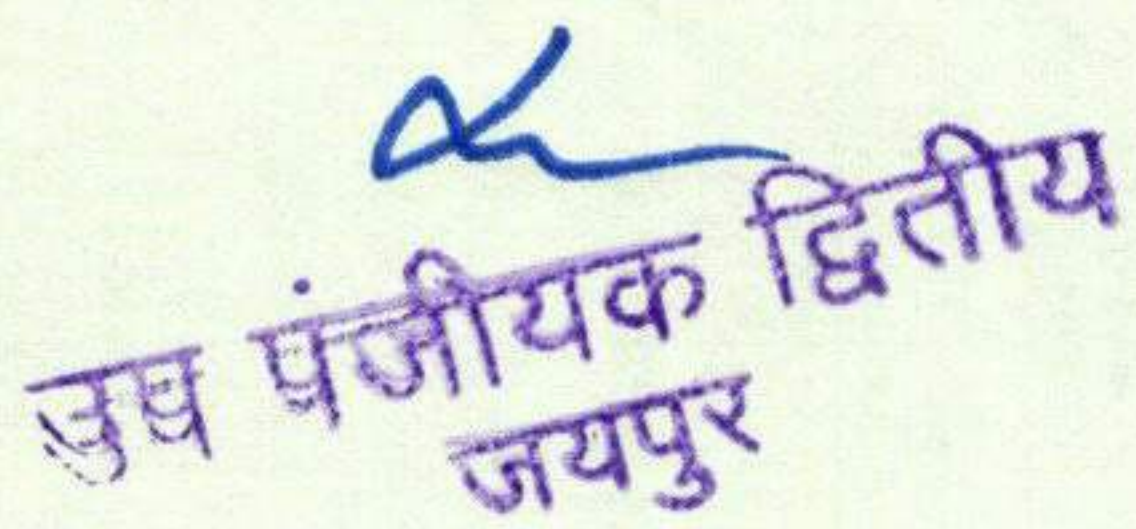 उप पंजीयक द्वितीय
जयपुर